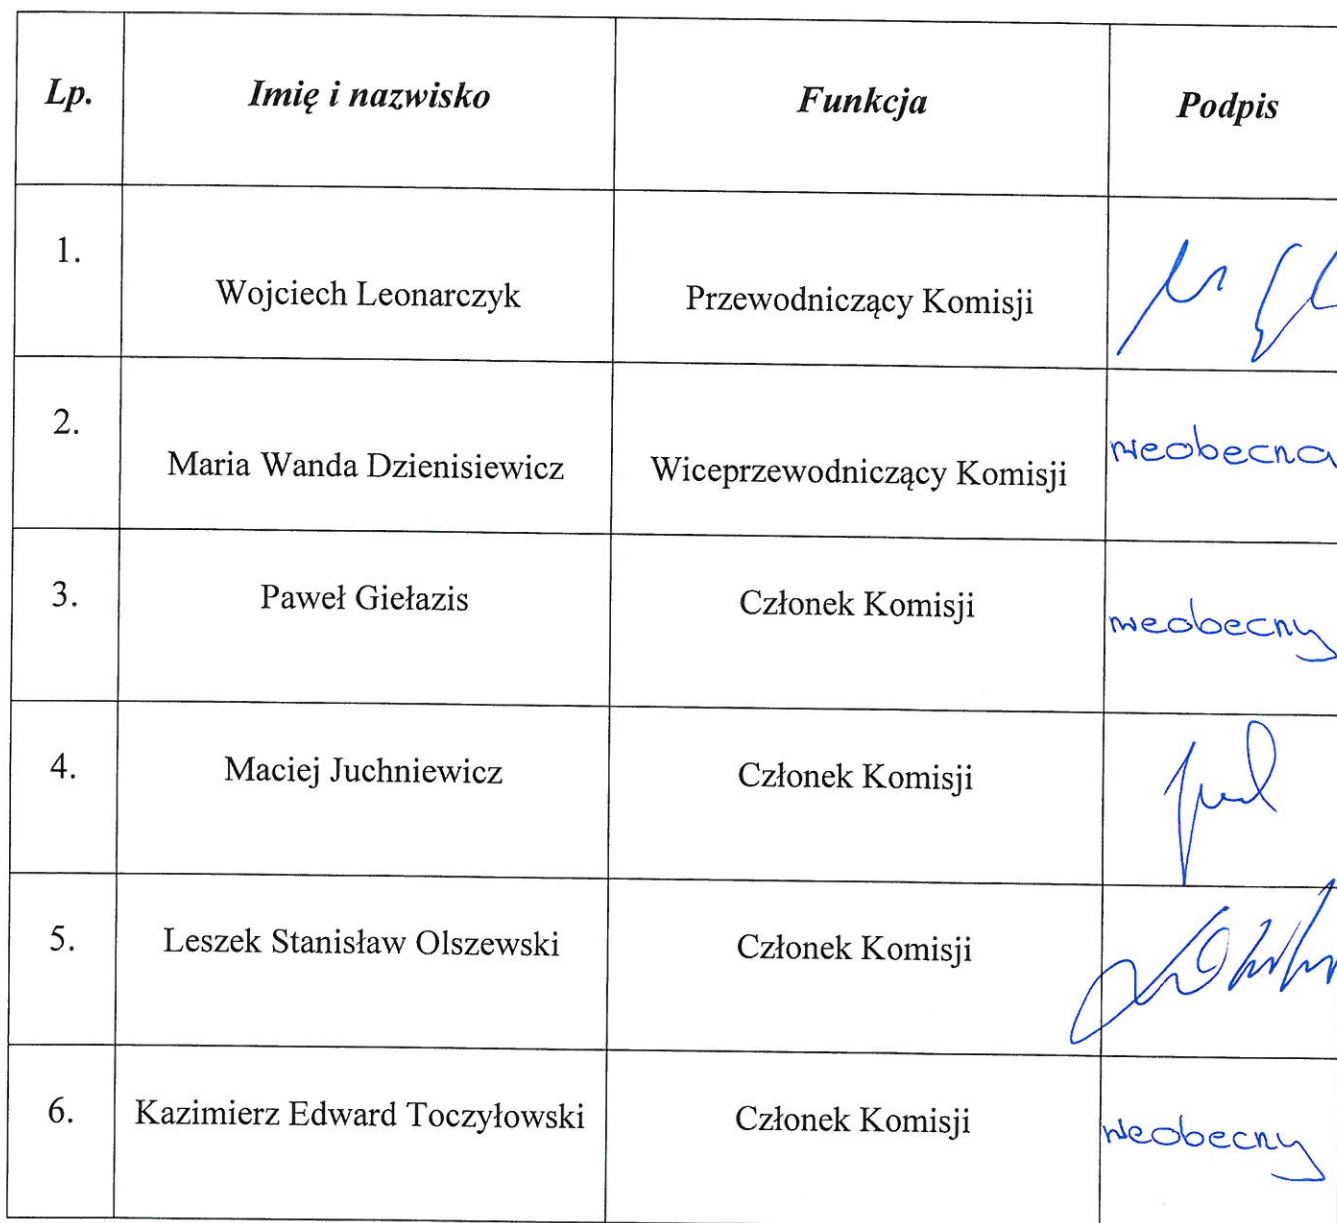 Lp. Imię i nazwisko Funkcja Podpis
1. Wojciech Leonarczyk Przewodniczący Komisji
2. Maria Wanda Dzienisiewicz Wiceprzewodniczący Komisji nieobecna
3. Paweł Giełazis Członek Komisji nieobecny
4. Maciej Juchniewicz Członek Komisji
5. Leszek Stanisław Olszewski Członek Komisji
6. Kazimierz Edward Toczyłowski Członek Komisji nieobecny